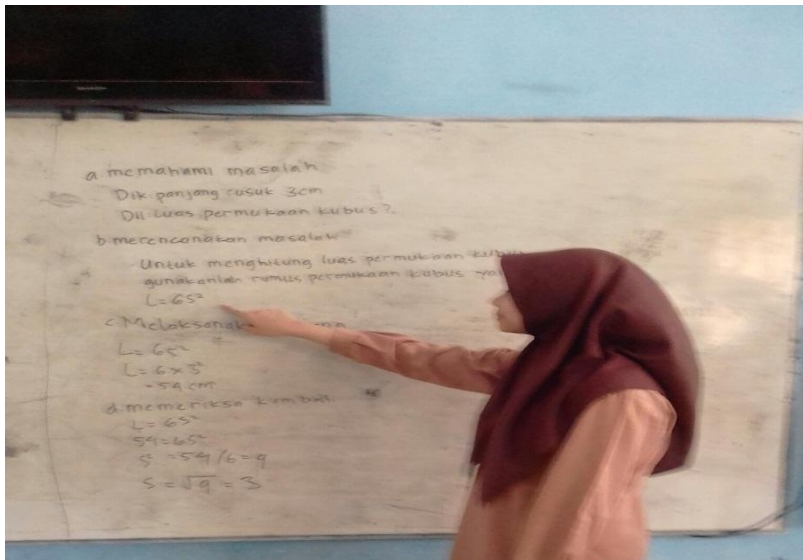 SHARP
a memahami masalah
Dik panjang rusuk 3cm
Dit luas permukaan kubus?
b. merencanakan masalah
Untuk menghitung luas permukaan kubus
gunakanlah rumus permukaan kubus ya
L = 6S²
c. Melaksanak
L = 6S²
L = 6 × 3²
= 54 cm
d. memeriksa kembali
L = 6S²
54 = 6S²
S² = 54/6 = 9
S = √9 = 3